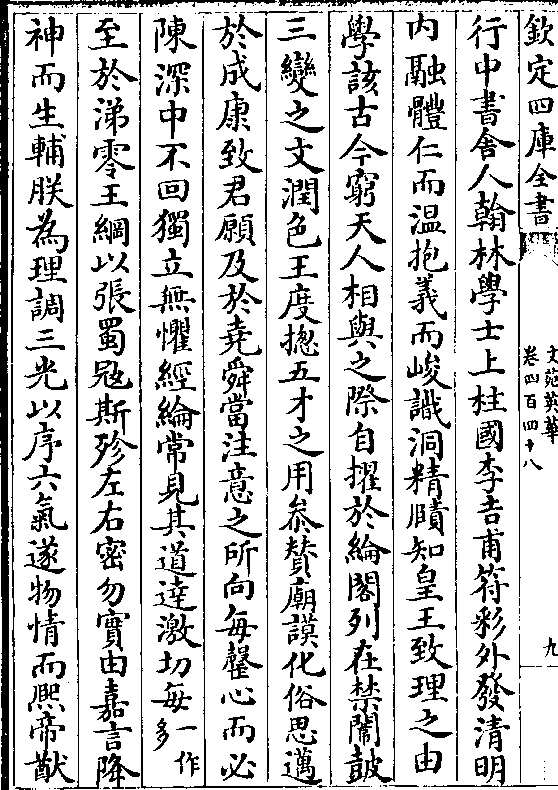 欽定四庫全書
文苑英華
卷四百四十八
九
行中書舍人翰林學士上柱國李吉甫符彩外發清明
内融體仁而温抱義而峻識洞精賾知皇王致理之由
學該古今窮天人相與之際自擢於綸閣列在禁闈鼓
三變之文潤色王度揔五才之用叅賛廟謨化俗思邁
於成康致君願及於堯舜當注意之所向每罄心而必
陳深中不回獨立無懼經綸常見其道達激切每一作多
至於涕零王綱以張蜀㓂斯殄左右密勿實由嘉言降
神而生輔朕為理調三光以序六氣遂物情而熈帝猷